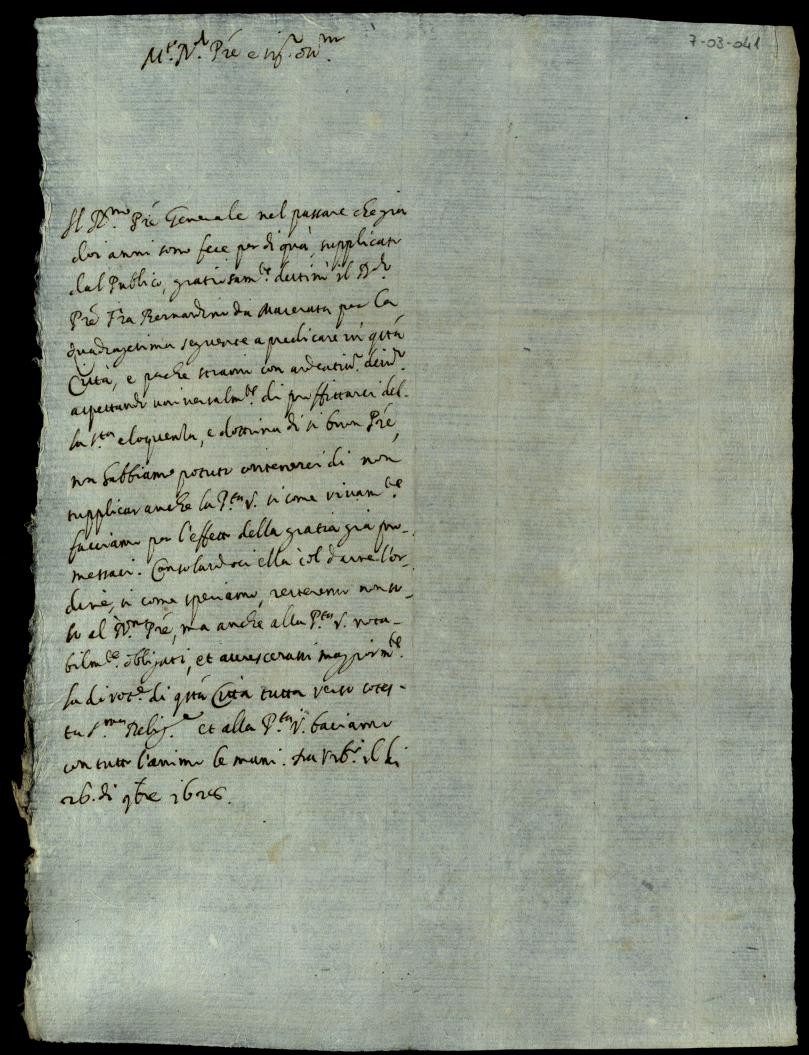 7-03-041
M.to R.do P're e sig.r oss.mo
Il R.mo P're Generale nel passare che già
doi anni sono fece per di quà, supplicato
dal Publico, gratiosam.te destinò il R.do
P're Fra Bernardino da Macerata per la
Quadragesima seguente a predicare in q'sta
Città, e perche stiamo con ardentiss.o desid.o
aspettando universalm.te di profittarci del-
la s.ta eloquenza, e dottrina di sì buon P're,
non habbiamo potuto contenerci di non
supplicar anche la P.tà V. si come vivam.te
facciamo per l'effetto della gratia già pro-
messaci. Consolandoci ella col darne l'or-
dine, si come speriamo, resteremo non so-
lo al R.mo P're, ma anche alla P.tà V. nota-
bilm.te obligati, et accrescerassi maggiorm.te
la divot.e di q'sta Città tutta verso cotes-
ta s.ma Relig.e et alla P.tà V. baciamo
con tutto l'animo le mani. Da Urb.o il di
26. di 9bre 1626.